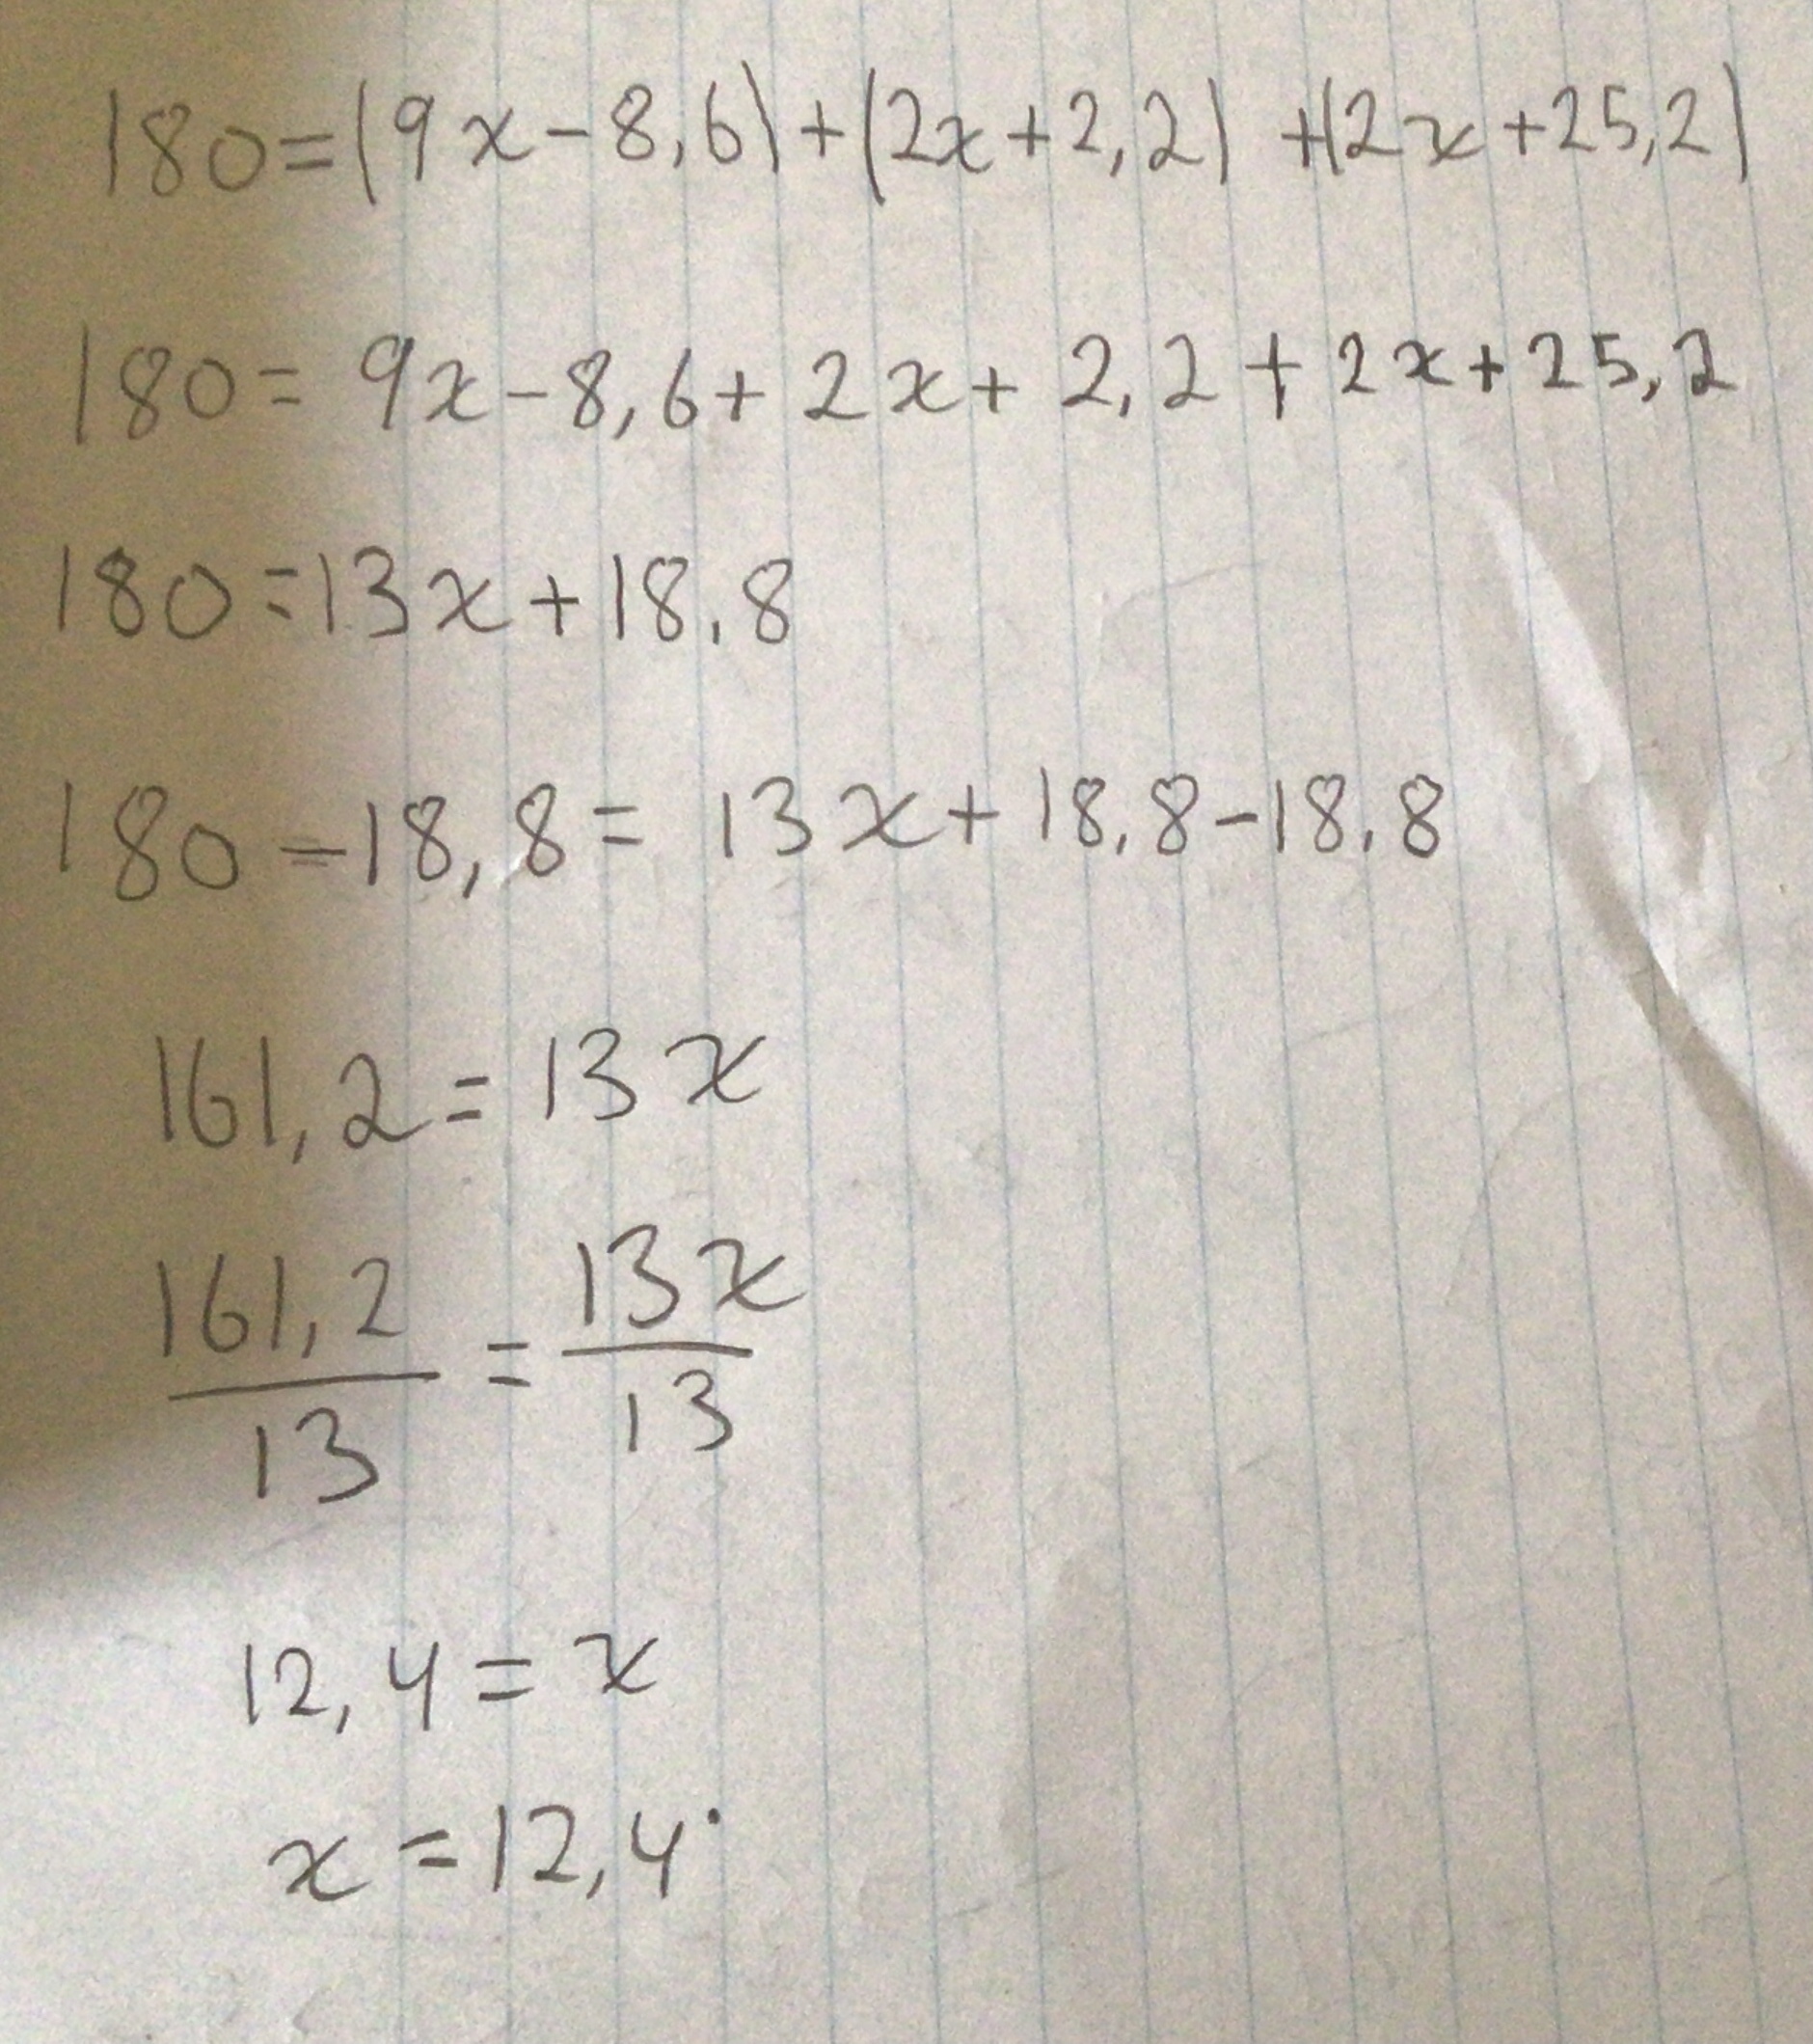 180=(9x-8,6)+(2x+2,2)+(2x+25,2)
180=9x-8,6+2x+2,2+2x+25,2
180=13x+18,8
180-18,8=13x+18,8-18,8
161,2=13x
161,2/13=13x/13
12,4=x
x=12,4°